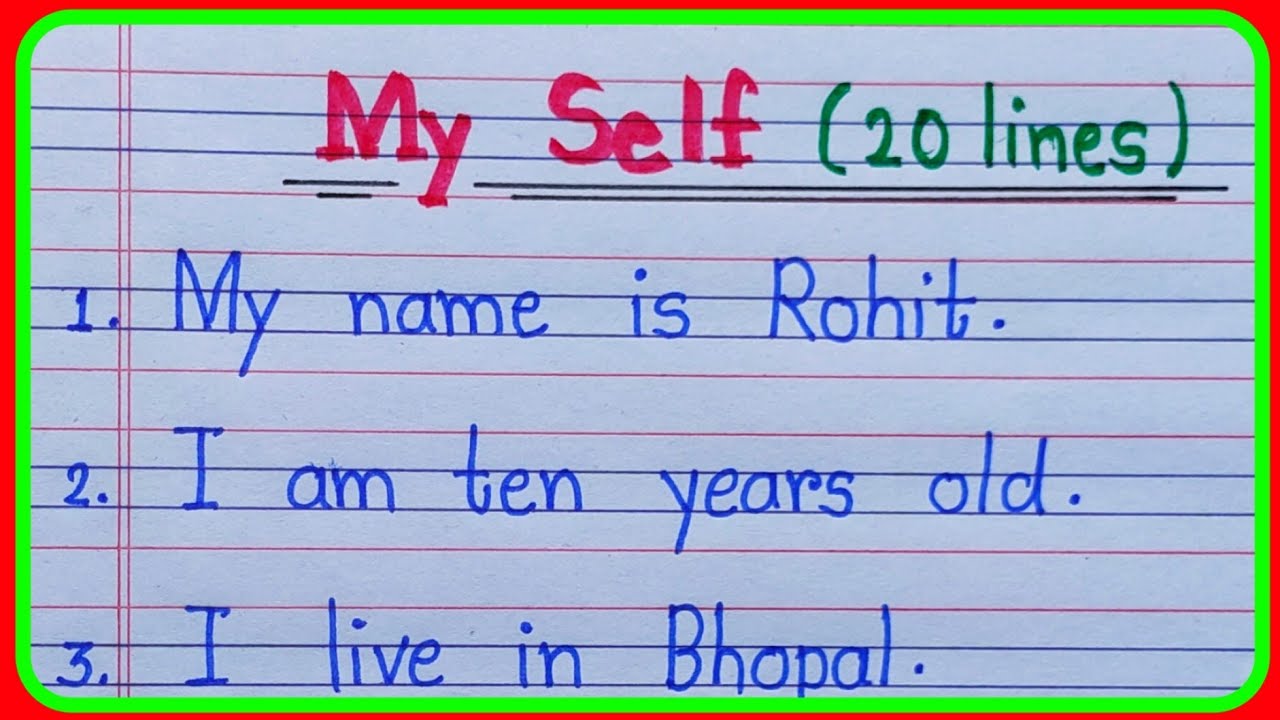 My Self (20 lines)
1. My name is Rohit.
2. I am ten years old.
3. I live in Bhopal.